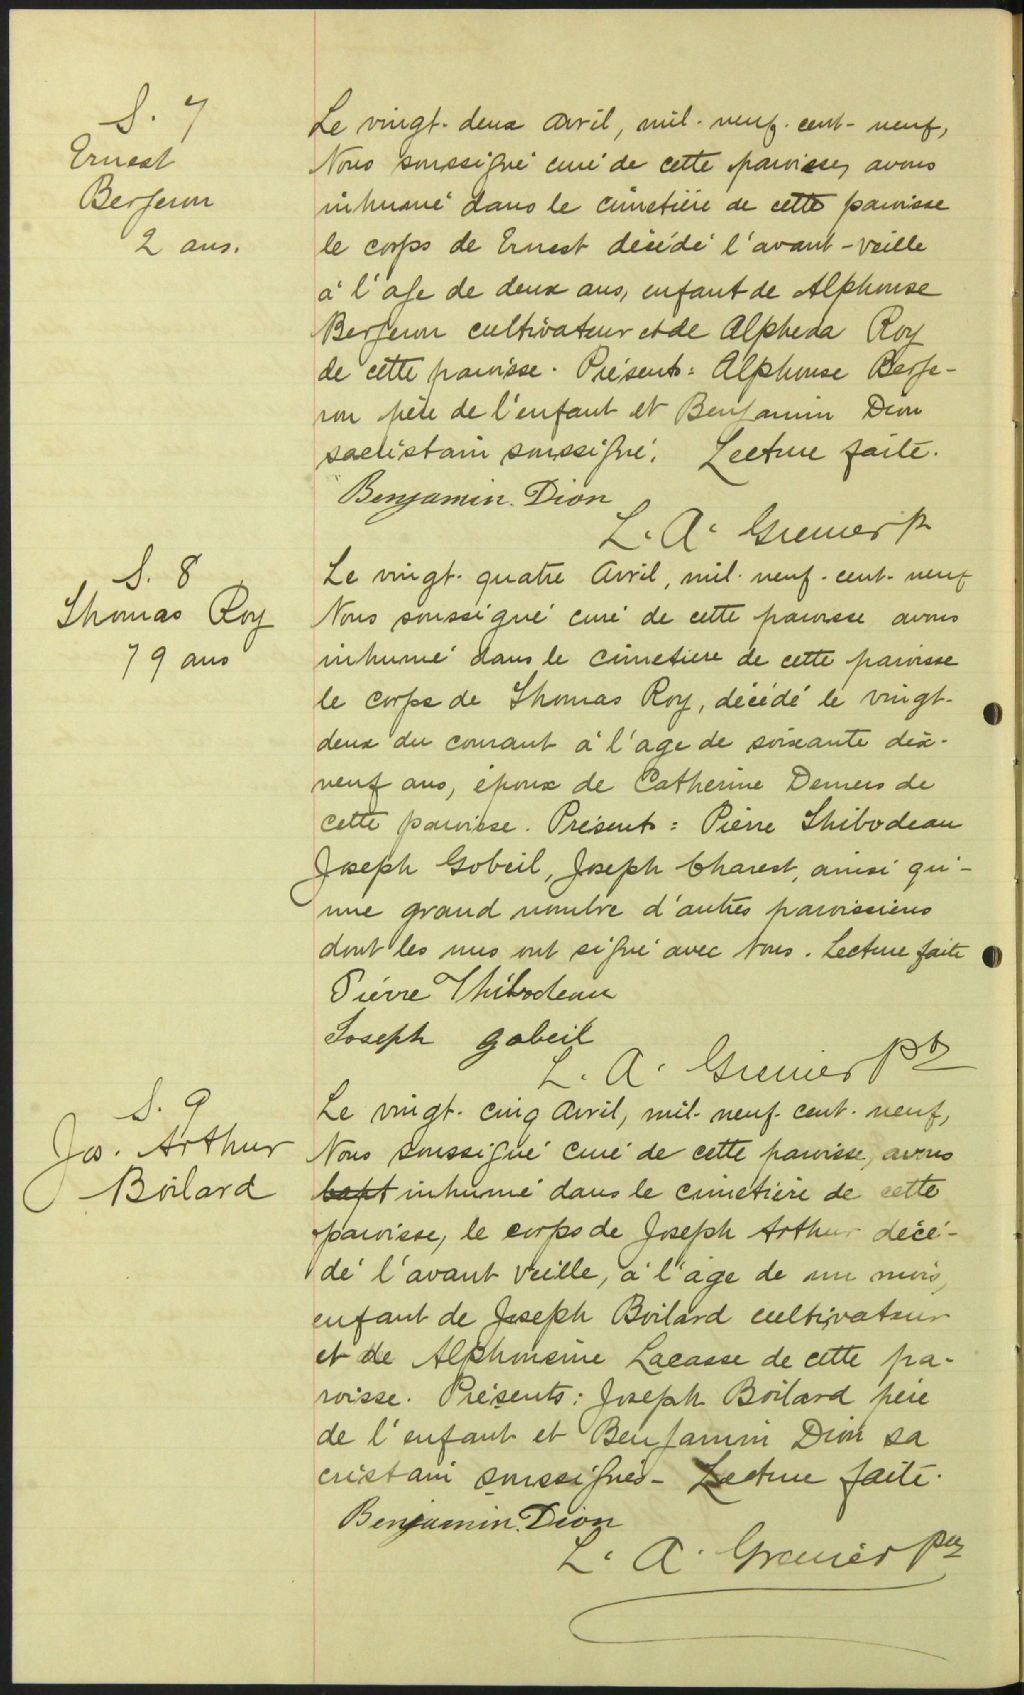 S. 7
Ernest
Bergeron
2 ans.
Le vingt-deux Avril, mil-neuf-cent-neuf,
Nous soussigné curé de cette paroisse, avons
inhumé dans le cimetière de cette paroisse
le corps de Ernest décédé l'avant-veille
à l'age de deux ans, enfant de Alphonse
Bergeron cultivateur et de Alpheda Roy
de cette paroisse. Présents: Alphonse Berge-
ron père de l'enfant et Benjamin Dion
sacristain soussigné. Lecture faite.
Benjamin. Dion
L. A. Grenier p
S. 8
Thomas Roy
79 ans
Le vingt-quatre Avril, mil-neuf-cent-neuf
Nous soussigné curé de cette paroisse avons
inhumé dans le cimetière de cette paroisse
le corps de Thomas Roy, décédé le vingt-
deux du courant à l'age de soixante dix-
neuf ans, époux de Catherine Demers de
cette paroisse. Présents: Pierre Thibodeau
Joseph Gobeil, Joseph Charest, ainsi qu'-
une grand nombre d'autres paroissiens
dont les uns ont signé avec Nous. Lecture faite
Piérre Thibodeau
Joseph gobeil
L. A. Grenier Ptr
S. 9
Jos. Arthur
Boilard
Le vingt-cinq Avril, mil-neuf-cent-neuf,
Nous soussigné curé de cette paroisse, avons
bapt inhumé dans le cimetière de cette
paroisse, le corps de Joseph Arthur décé-
dé l'avant veille, à l'âge de un mois,
enfant de Joseph Boilard cultivateur
et de Alphonsine Lacasse de cette pa-
roisse. Présents: Joseph Boilard père
de l'enfant et Benjamin Dion sa
cristain soussignés- Lecture faite.
Benjamin. Dion
L. A. Grenier Ptr